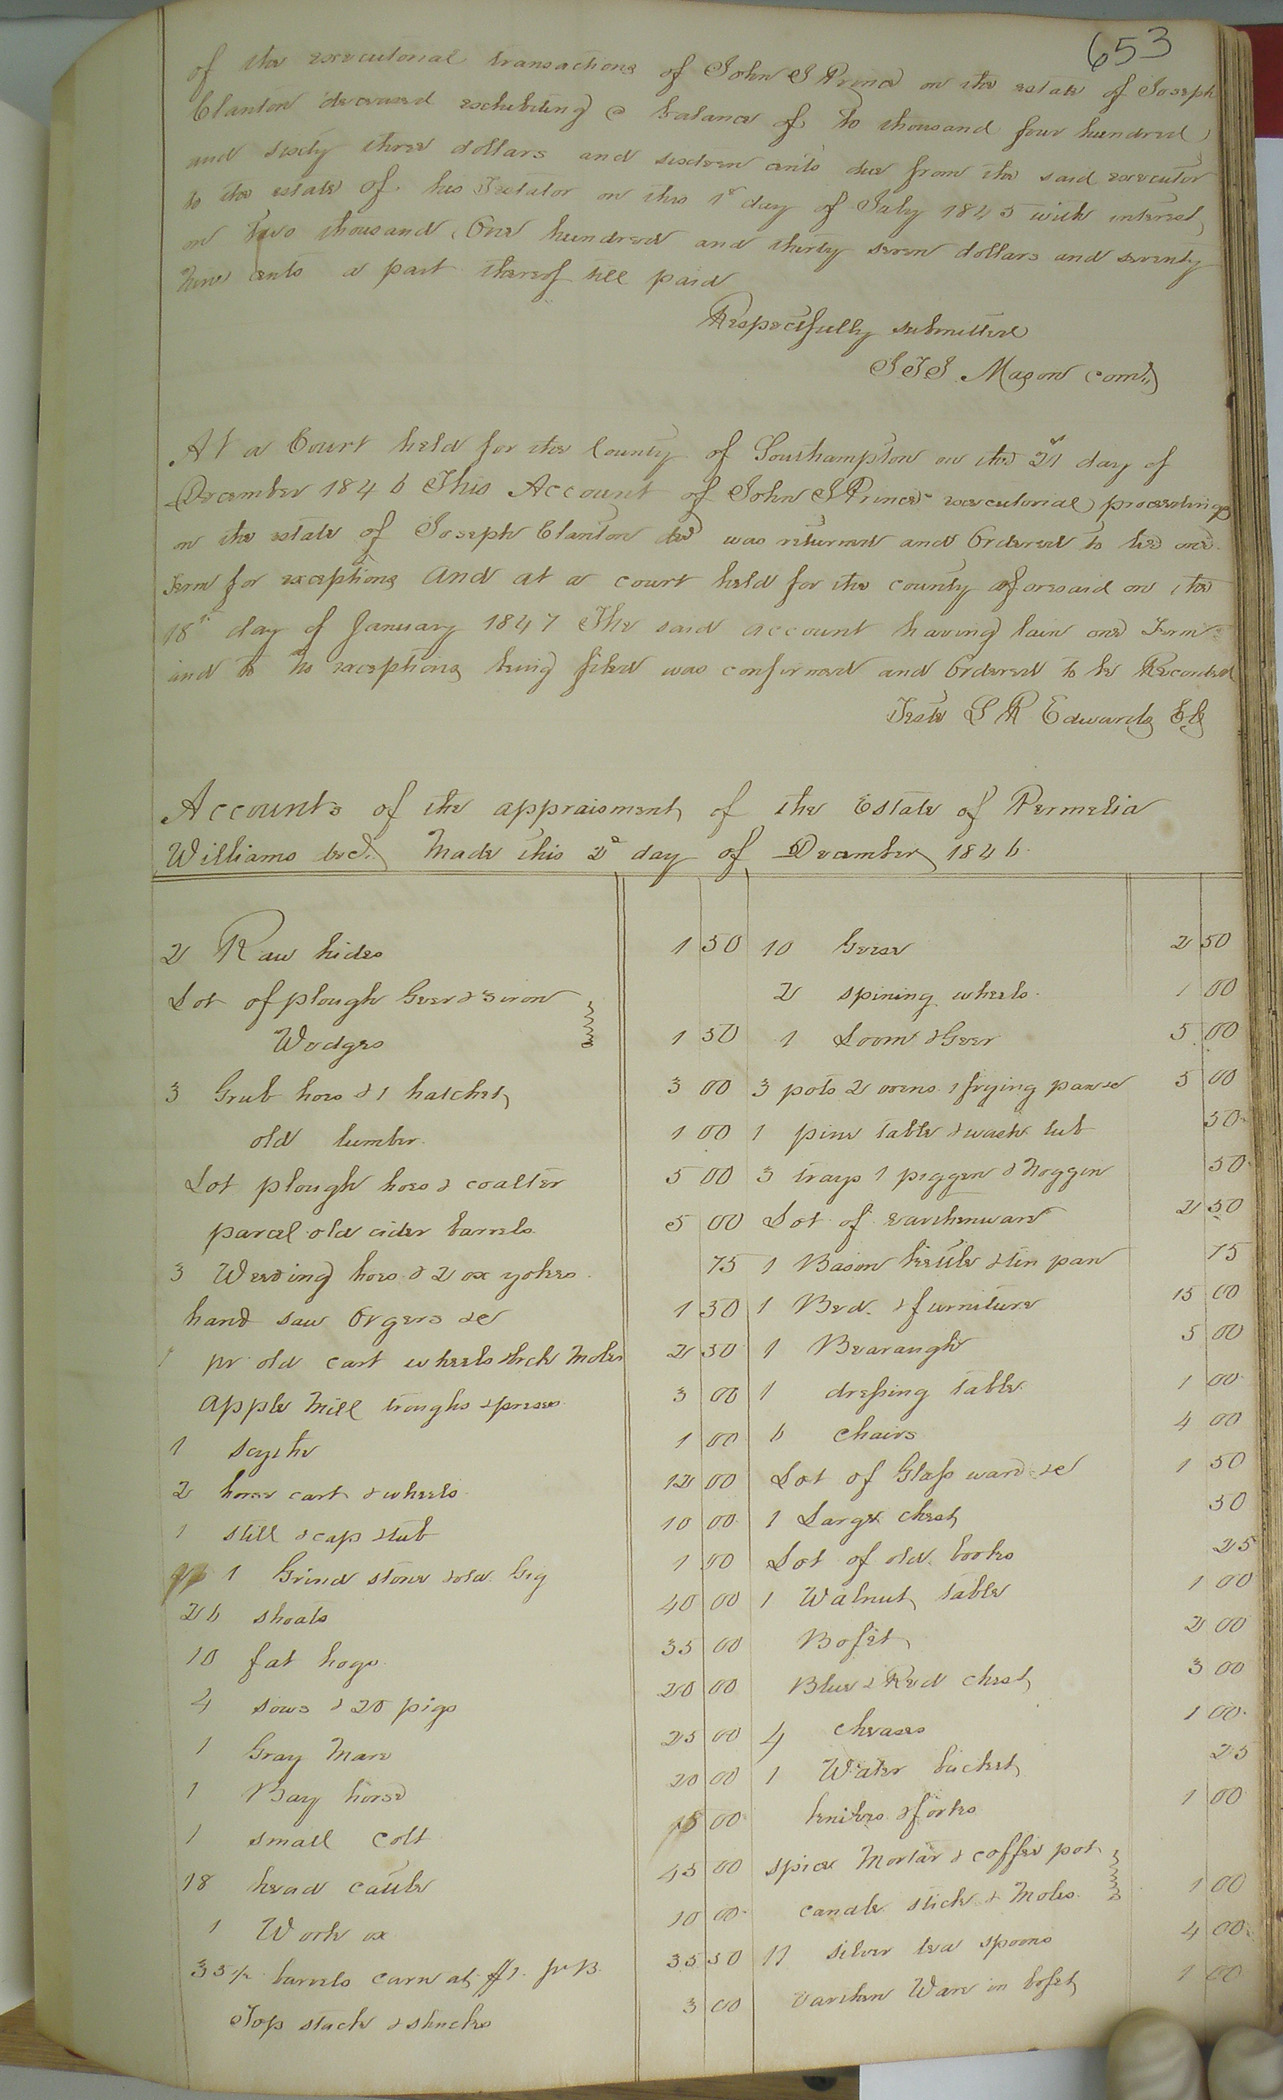 653
of the executorial transactions of John S Prince on the estate of Joseph
Clanton deceased exhibiting a balance of to thousand four hundred
and sixty three dollars and sixteen cents due from the said executor
to the estate of his Testator on this 1st day of July 1845 with interest
on Two thousand One hundred and thirty seven dollars and seventy
nine cents a part thereof till paid
Respectfully submitted
J T J Mason comr
At a Court held for the County of Southampton on the 21st day of
December 1846 This Account of John S Prince executorial proceedings
on the estate of Joseph Clanton decd was returned and Ordered to lie one
Term for exceptions And at a court held for the county aforesaid on the
18th day of January 1847 The said account having lain one Term
and to no exceptions being filed was confirmed and Ordered to be Recorded
Teste L R Edwards Clk
Accounts of the appraisment of the Estate of Permelia
Williams decd. Made this 2d day of December 1846
2 Raw hides 1 50
Lot of plough Geer & 3 iron
Wedges 1 50
3 Grub hoes & 1 hatchet 3 00
old lumber 1 00
Lot plough hoes & coalter 5 00
parcel old cider barrels 5 00
3 Weeding hoes & 2 ox yokes 75
hand saw Orgers &c 1 50
1 pr old cart wheels brck Moles 2 50
apple Mill troughs & press 3 00
1 scythe 1 00
2 horse cart & wheels 12 00
1 still & cap & tub 10 00
1 Grind stone & old Gig 1 00
26 shoats 40 00
10 fat hogs 35 00
4 sows & 20 pigs 20 00
1 Gray Mare 25 00
1 Bay horse 20 00
1 small colt 15 00
18 head cattle 45 00
1 Work ox 10 00
35 1/2 barrels corn at $1. pr B. 35 50
Top stack & shucks 3 00
10 Geese 2 50
2 spining wheels 1 00
1 Loom & Geer 5 00
3 pots 2 ovens 1 frying pan &c 5 00
1 pine table & wash tub 50
3 trays 1 piggen & Noggen 50
Lot of earthenware 2 50
1 Bason kettle & tin pan 75
1 Bed & furniture 15 00
1 Bearaugh 5 00
1 dressing table 1 00
6 chairs 4 00
Lot of Glass ware &c 1 50
1 Large chest 50
Lot of old books 25
1 Walnut table 1 00
Bofet 2 00
Blue & Red chest 3 00
4 cheases 1 00
1 Water bucket 25
knives & forks 1 00
spice Mortar & coffee pot
candle stick & Moles 1 00
11 silver tea spoons 4 00
earthen Ware in bofet 1 00